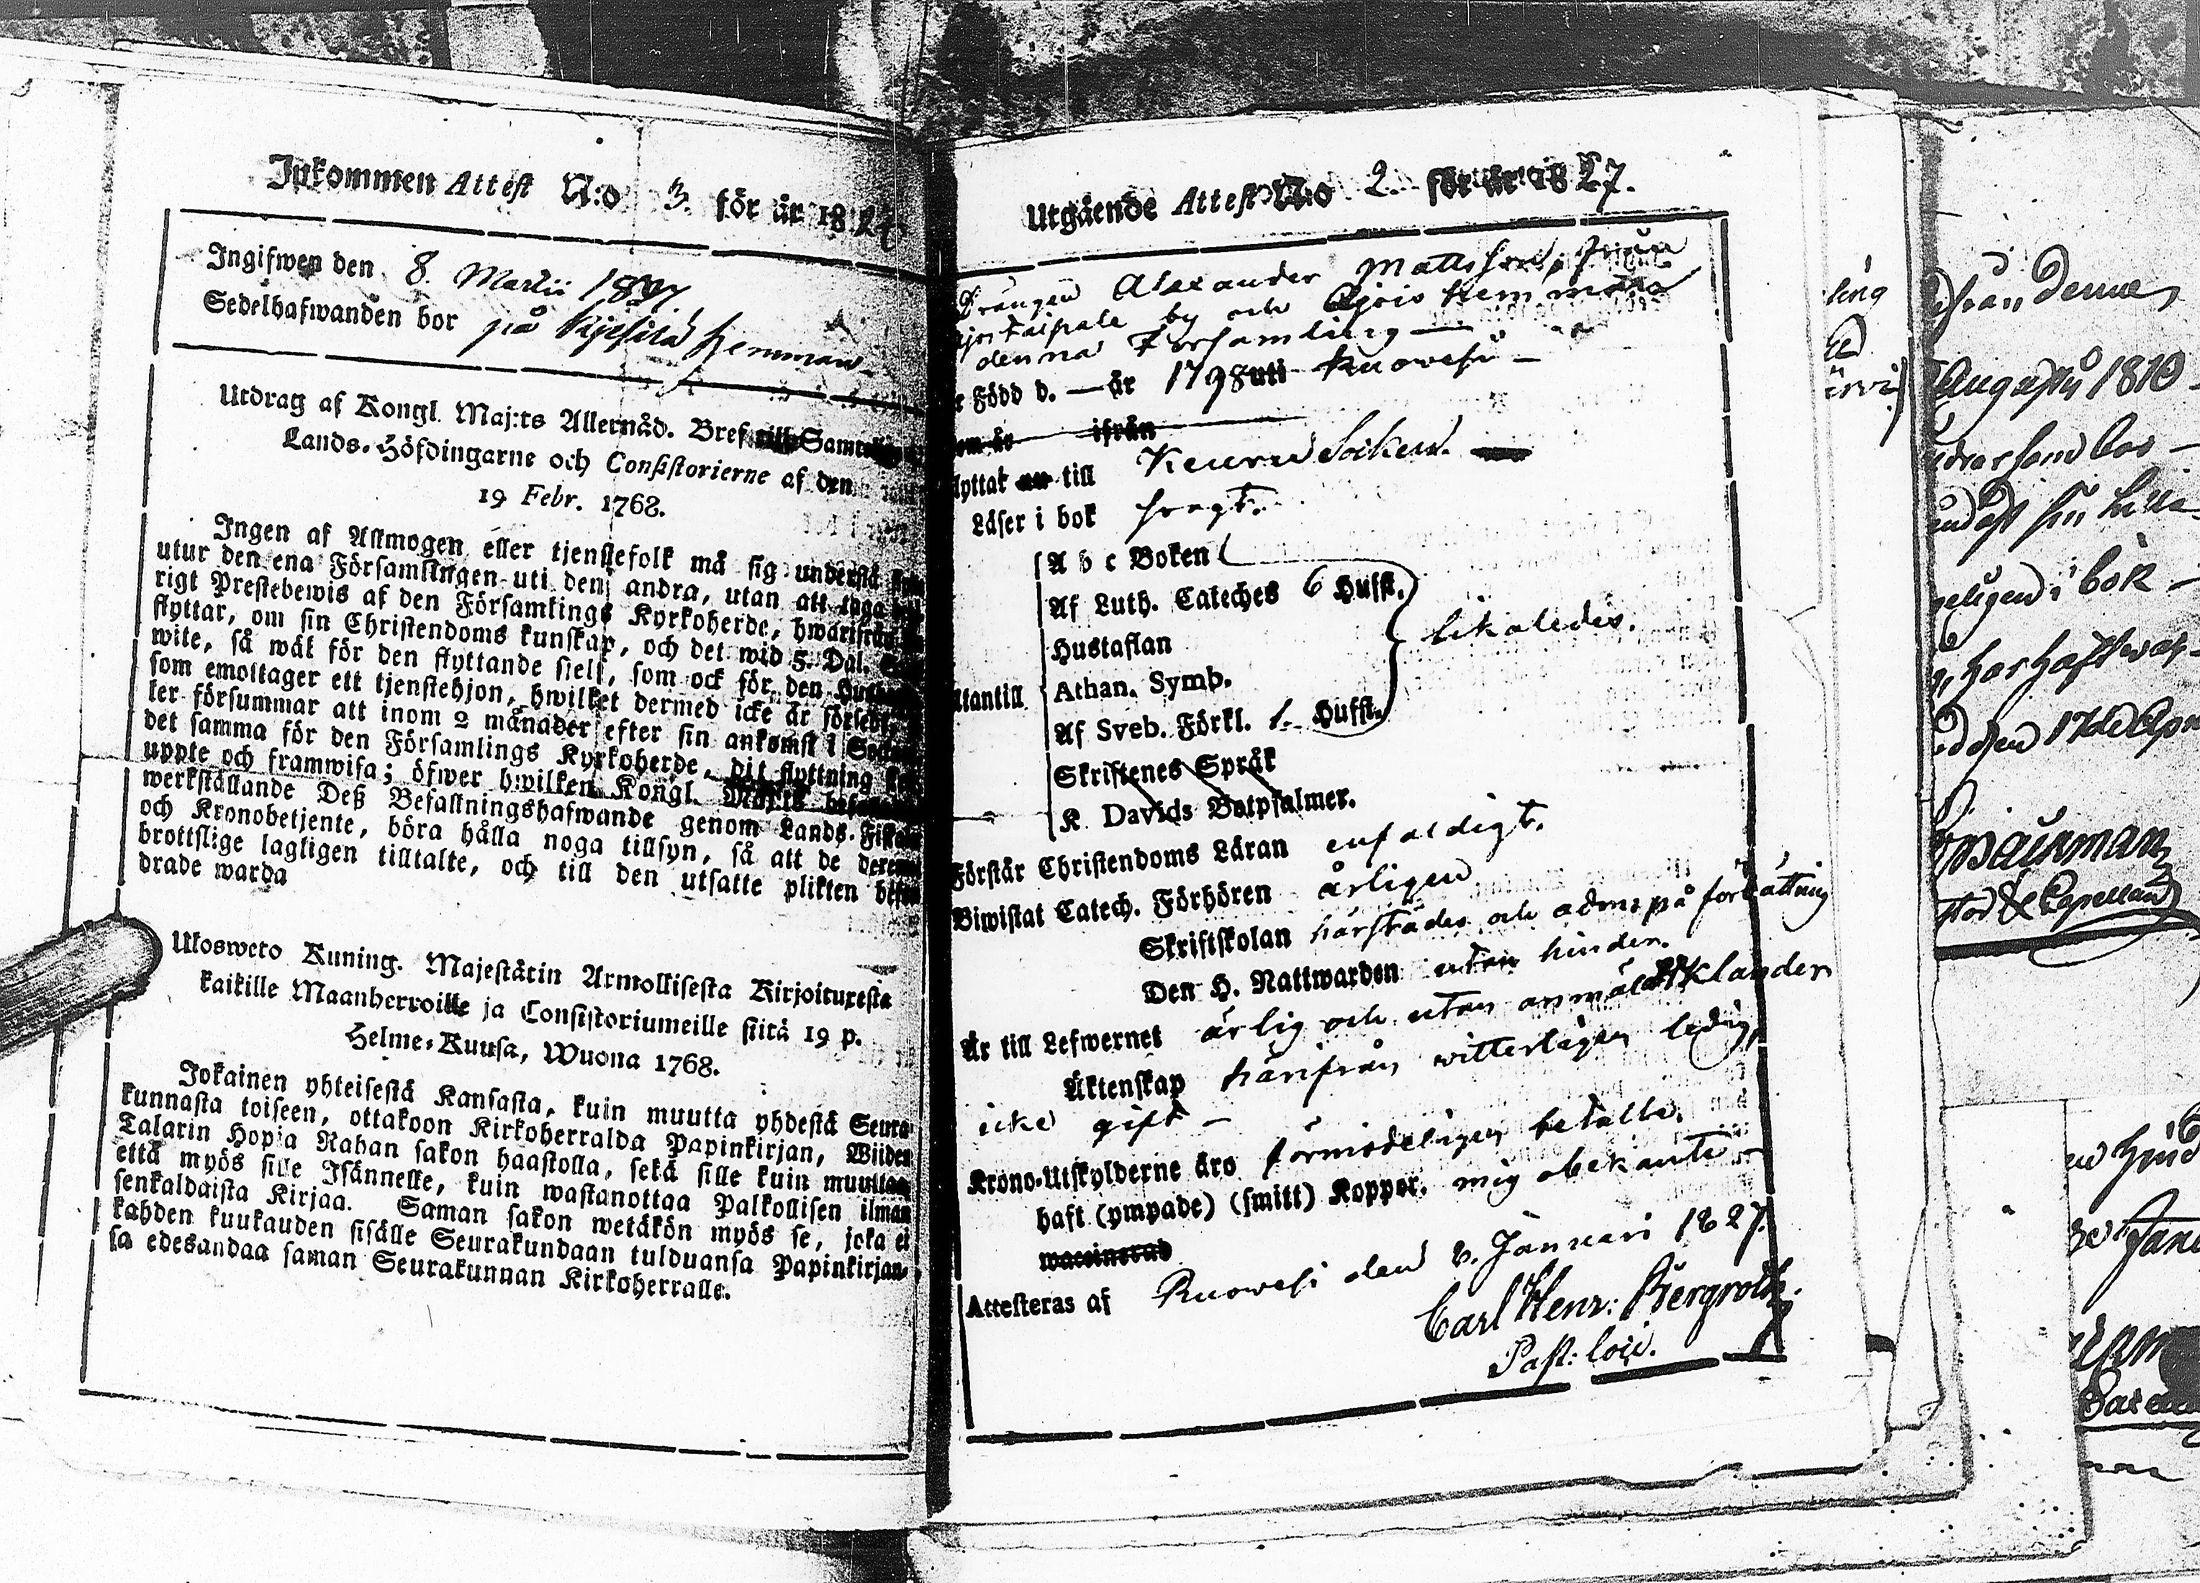 Inkommen Attest N:o 3. för år 1827
Ingifwen den 8. Martii 1827
Sedelhafwanden bor på hemman
Utdrag af Kongl. Maj:ts Allernåd. Bref till Samtel
Lands-Höfdingarne och Consistorierne af den
19 Febr. 1768.
Ingen af Allmogen eller tjenstefolk må sig understå
utur den ena Församlingen uti den andra, utan att taga
rigt Prestebewis af den Församlings Kyrkoherde, hwarifrån
flyttar, om sin Christendoms kunskap, och det wid 5. Dal. S.
wite, så wäl för den flyttande sielf, som ock för den
som emottager ett tjenstehjon, hwilket dermed icke är försedt
ler försummar att inom 2 månader efter sin ankomst i
det samma för den Församlings Kyrkoherde, dit flyttning
uppte och framwisa; öfwer hwilken Kongl. Maj:ts
werkställande Deß Befallningshafwande genom Lands-Fiskal
och Kronobetjente, böra hålla noga tillsyn, så att de
brottslige lagligen tilltalte, och till den utsatte plikten
drade warda
Ulosweto Kuning. Majestätin Armollisesta Kirjoituxesta
kaikille Maanherroille ja Consistoriumeille siitä 19 p.
Helme-Kuusa, Wuona 1768.
Jokainen yhteisestä Kansasta, kuin muutta yhdestä Seura-
kunnasta toiseen, ottakoon Kirkoherralda Papinkirjan, Wiiden
Talarin Hopia Rahan sakon haastolla, sekä sille kuin muuttaa
että myös sille Isännelle, kuin wastanottaa Palkollisen ilman
senkaldaista Kirjaa. Saman sakon wetäkön myös se, joka ei
kahden kuukauden sisälle Seurakundaan tulduansa Papinkirjan-
sa edesandaa saman Seurakunnan Kirkoherralle.
Utgående Attest N:o 2. för år 1827.
Drängen Alexander Mattsson, från
by och hemman
denna Församling —
r Född d. — år 179 uti Ruowesi —
om år ifrån
lyttat nu till Keuru Socken.
Läser i bok swagt.
A b c Boken
Af Luth. Cateches 6 Hufst.
Hustaflan likaledes.
ltantill Athan. Symb.
Af Sveb. Förkl. 1. Hufst.
Skriftenes Språk
K. Davids Botpsalmer.
Förstår Christendoms Läran enfaldigt.
Biwistat Catech. Förhören årligen
Skriftskolan härstädes och adm: på förbättring
Den H. Nattwarden utan hinder.
Är till Lefwernet ärlig och utan anmält klander
Äktenskap härifrån witterligen ledig,
icke gift —
Krono-Utskylderne äro förmodeligen betalte.
haft (ympade) (smitt) Koppor. mig obekant —
waccinerad
Attesteras af Ruowesi den 8. Januari 1827.
Carl Henr: Bergroth
Past: loci.
ling
från denne
Augusti 1810
som bor —
i bok —
har haft wat-
den 17de Apr
Backman
& Capellan